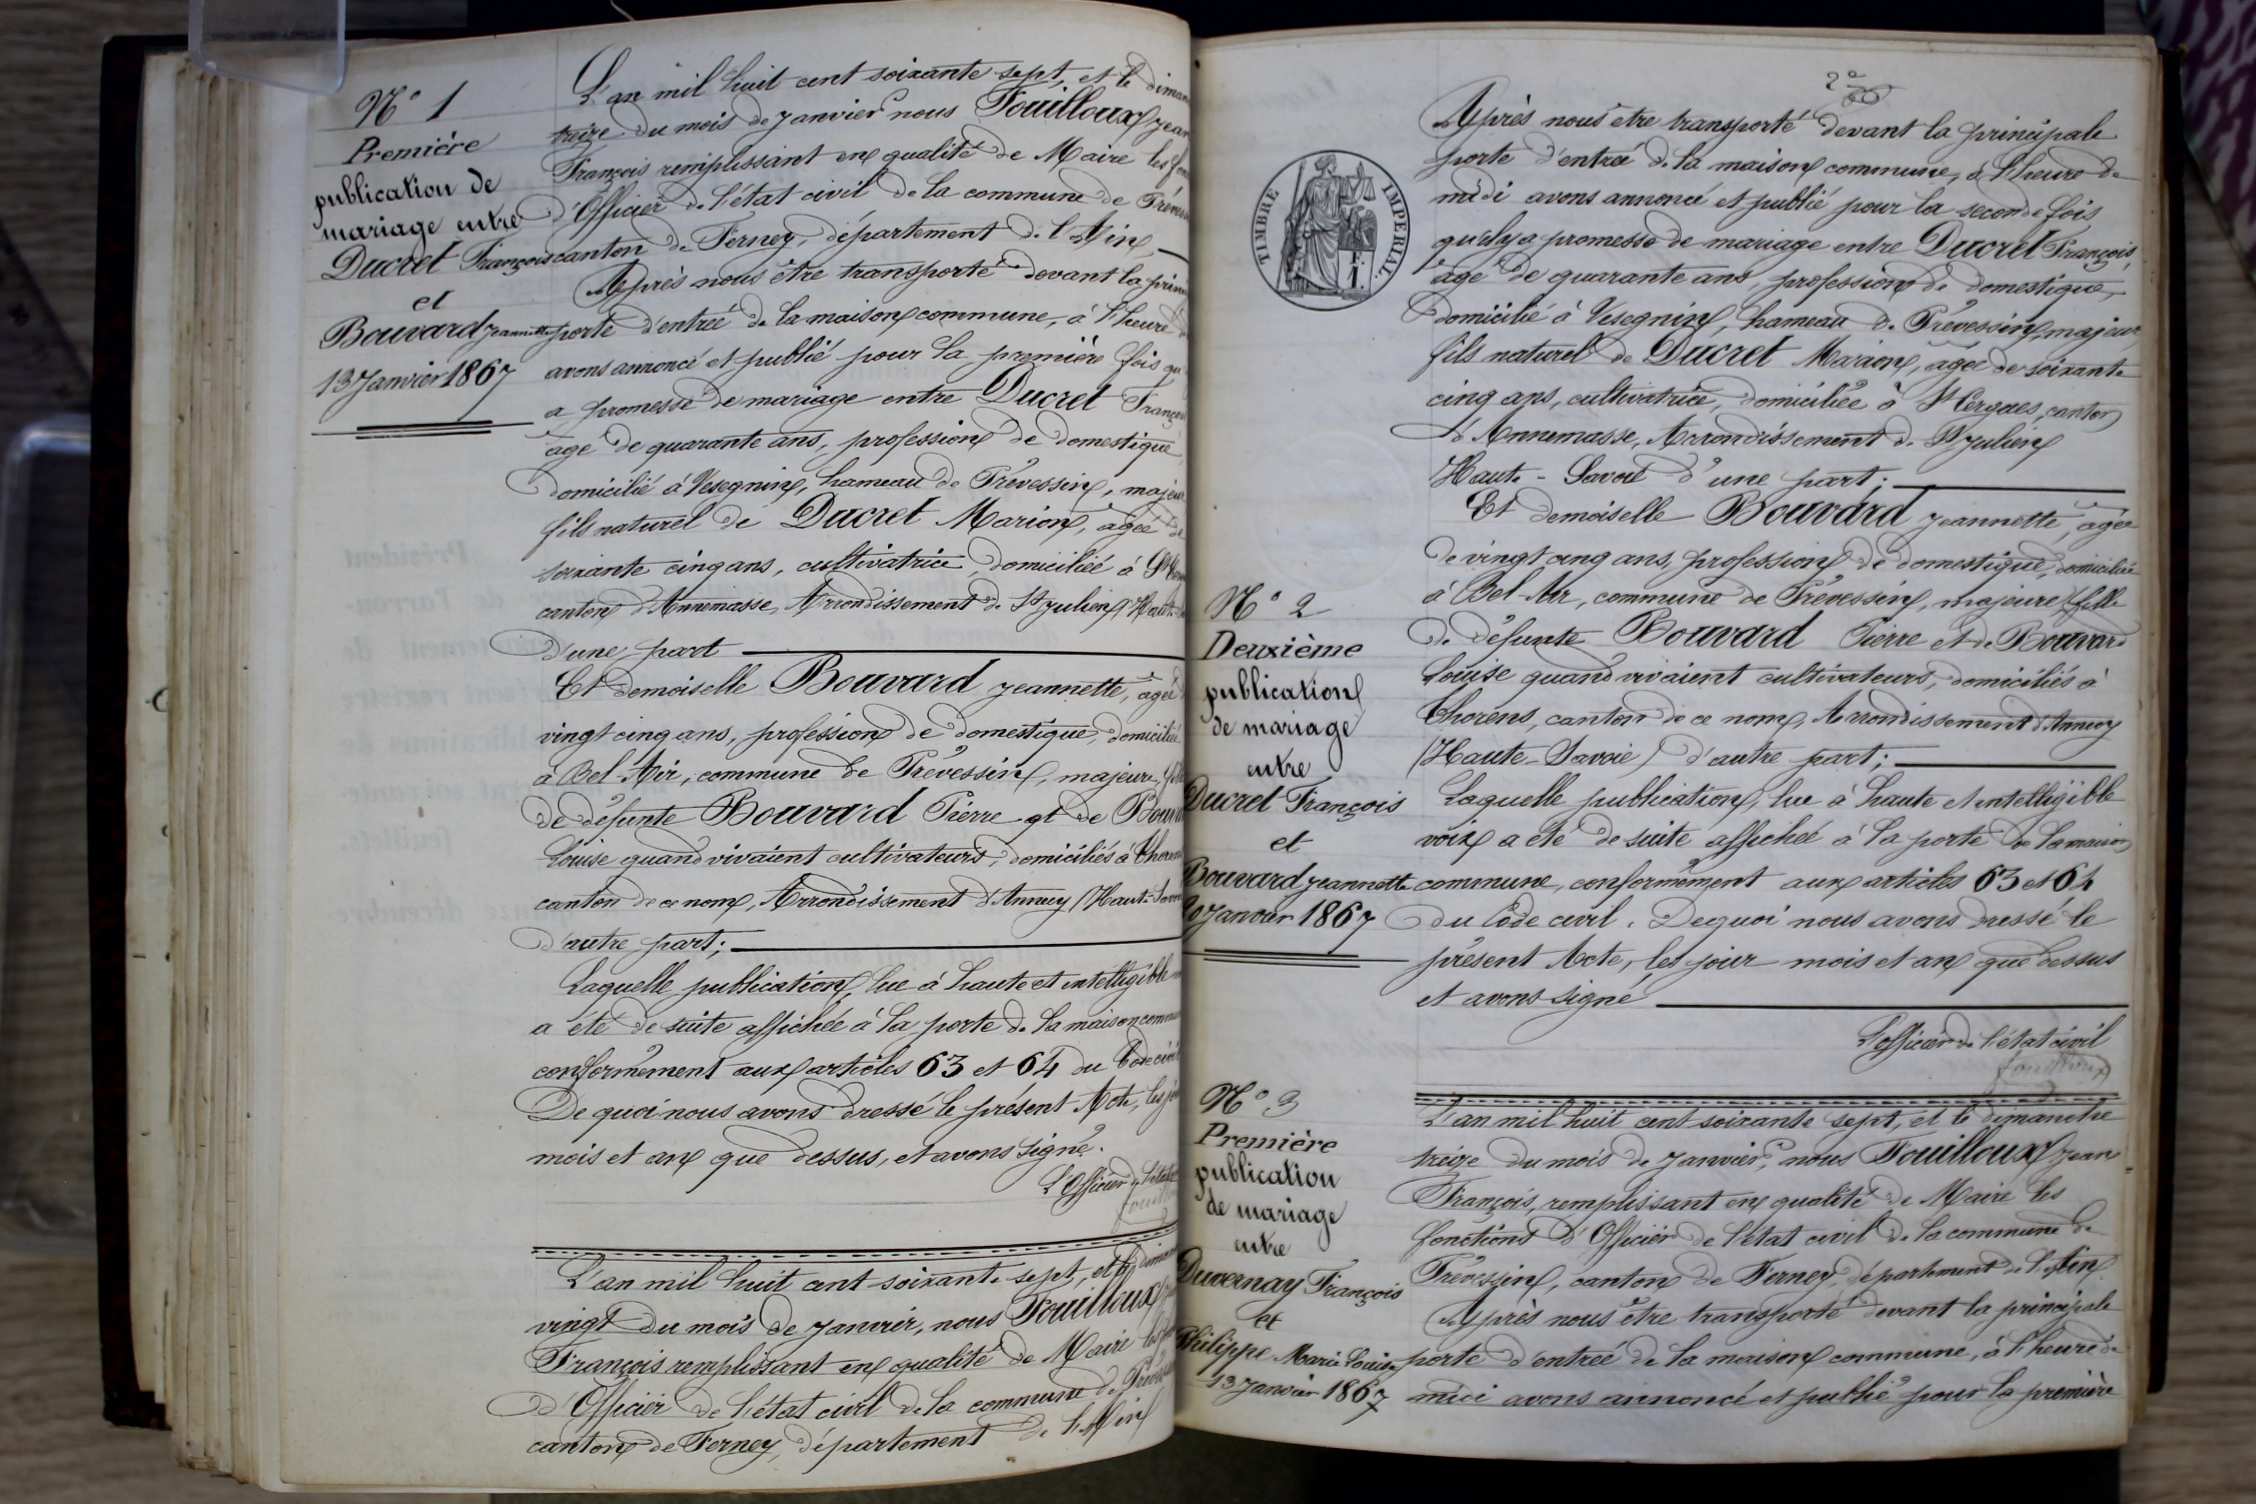 N° 1
Première
publication de
mariage entre
Ducret François
et
Bouvard Jeannette
13 Janvier 1867
L'an mil huit cent soixante sept, et le
treize du mois de Janvier nous Fouilloux Jean
François remplissant en qualité de Maire les
d'Officier de l'état civil de la commune de
canton de Ferney, département de l'Ain,
Après nous être transporté devant la
porte d'entreé de la maison commune, à l'heure
avons annoncé et publié pour la première fois qu
a promesse de mariage entre Ducret
âgé de quarante ans, profession de domestique,
domicilié à Vesegnin, hameau de Prévessin, majeur
fils naturel de Ducret Marion, âgée de
soixante cinq ans, cultivatrice, domiciliée à St
canton d'Annemasse, Arrondissement de St Julien,
d'une part
Et demoiselle Bouvard Jeannette, âgée
vingt cinq ans, profession de domestique, domiciliée
à Bel-Air, commune de Prévessin, majeure,
de défunte Bouvard Pierre et de
Louise quand vivaient cultivateurs, domiciliés à
canton de ce nom, Arrondissement d'Annecy
d'autre part;
Laquelle publication, lue à haute et intelligible
a été de suite affichée à la porte de la maison
conformément aux articles 63 et 64 du Code civil
De quoi nous avons dressé le présent Acte, les
mois et an que dessus, et avons signé.
L'Officier de
L'an mil huit cent soixante sept, et le
vingt du mois de Janvier, nous Fouilloux
François remplissant en qualité de Maire les
d'Officier de l'état civil de la commune de
canton de Ferney, département de l'Ain
2e
TIMBRE IMPERIAL
Après nous être transporté devant la principale
porte d'entreé de la maison commune, à l'heure de
midi avons annoncé et publié pour la seconde fois
qu'il y a promesse de mariage entre Ducret François,
âgé de quarante ans, profession de domestique,
domicilié à Vesegnin, hameau de Prévessin, majeur
fils naturel de Ducret Marion, âgée de soixante
cinq ans, cultivatrice, domiciliée à St Cergues, canton
d'Annemasse, Arrondissement de St Julien
Haute-Savoie d'une part;
Et demoiselle Bouvard Jeannette, âgée
de vingt cinq ans, profession de domestique, domiciliée
à Bel-Air, commune de Prévessin, majeure, fille
de défunte Bouvard Pierre et de Bouvard
Louise quand vivaient cultivateurs, domiciliés à
Thorens, canton de ce nom, Arrondissement d'Annecy
(Haute-Savoie) d'autre part;
Laquelle publication, lue à haute et intelligible
voix a été de suite affichée à la porte de la maison
commune, conformément aux articles 63 et 64
du Code civil. De quoi nous avons dressé le
présent Acte, les jour mois et an que dessus
et avons signé
L'officier de l'état civil
Fouilloux
N° 2
Deuxième
publication
de mariage
entre
Ducret François
et
Bouvard Jeannette
20 Janvier 1867
N° 3
Première
publication
de mariage
entre
Duvernay François
et
Philippe Marie Louise
13 Janvier 1867
L'an mil huit cent soixante sept, et le dimanche
treize du mois de Janvier, nous Fouilloux Jean
François, remplissant en qualité de Maire les
fonctions d'Officier de l'état civil de la commune de
Prévessin, canton de Ferney, département de l'Ain
Après nous être transporté devant la principale
porte d'entreé de la maison commune, à l'heure de
midi avons annoncé et publié pour la première